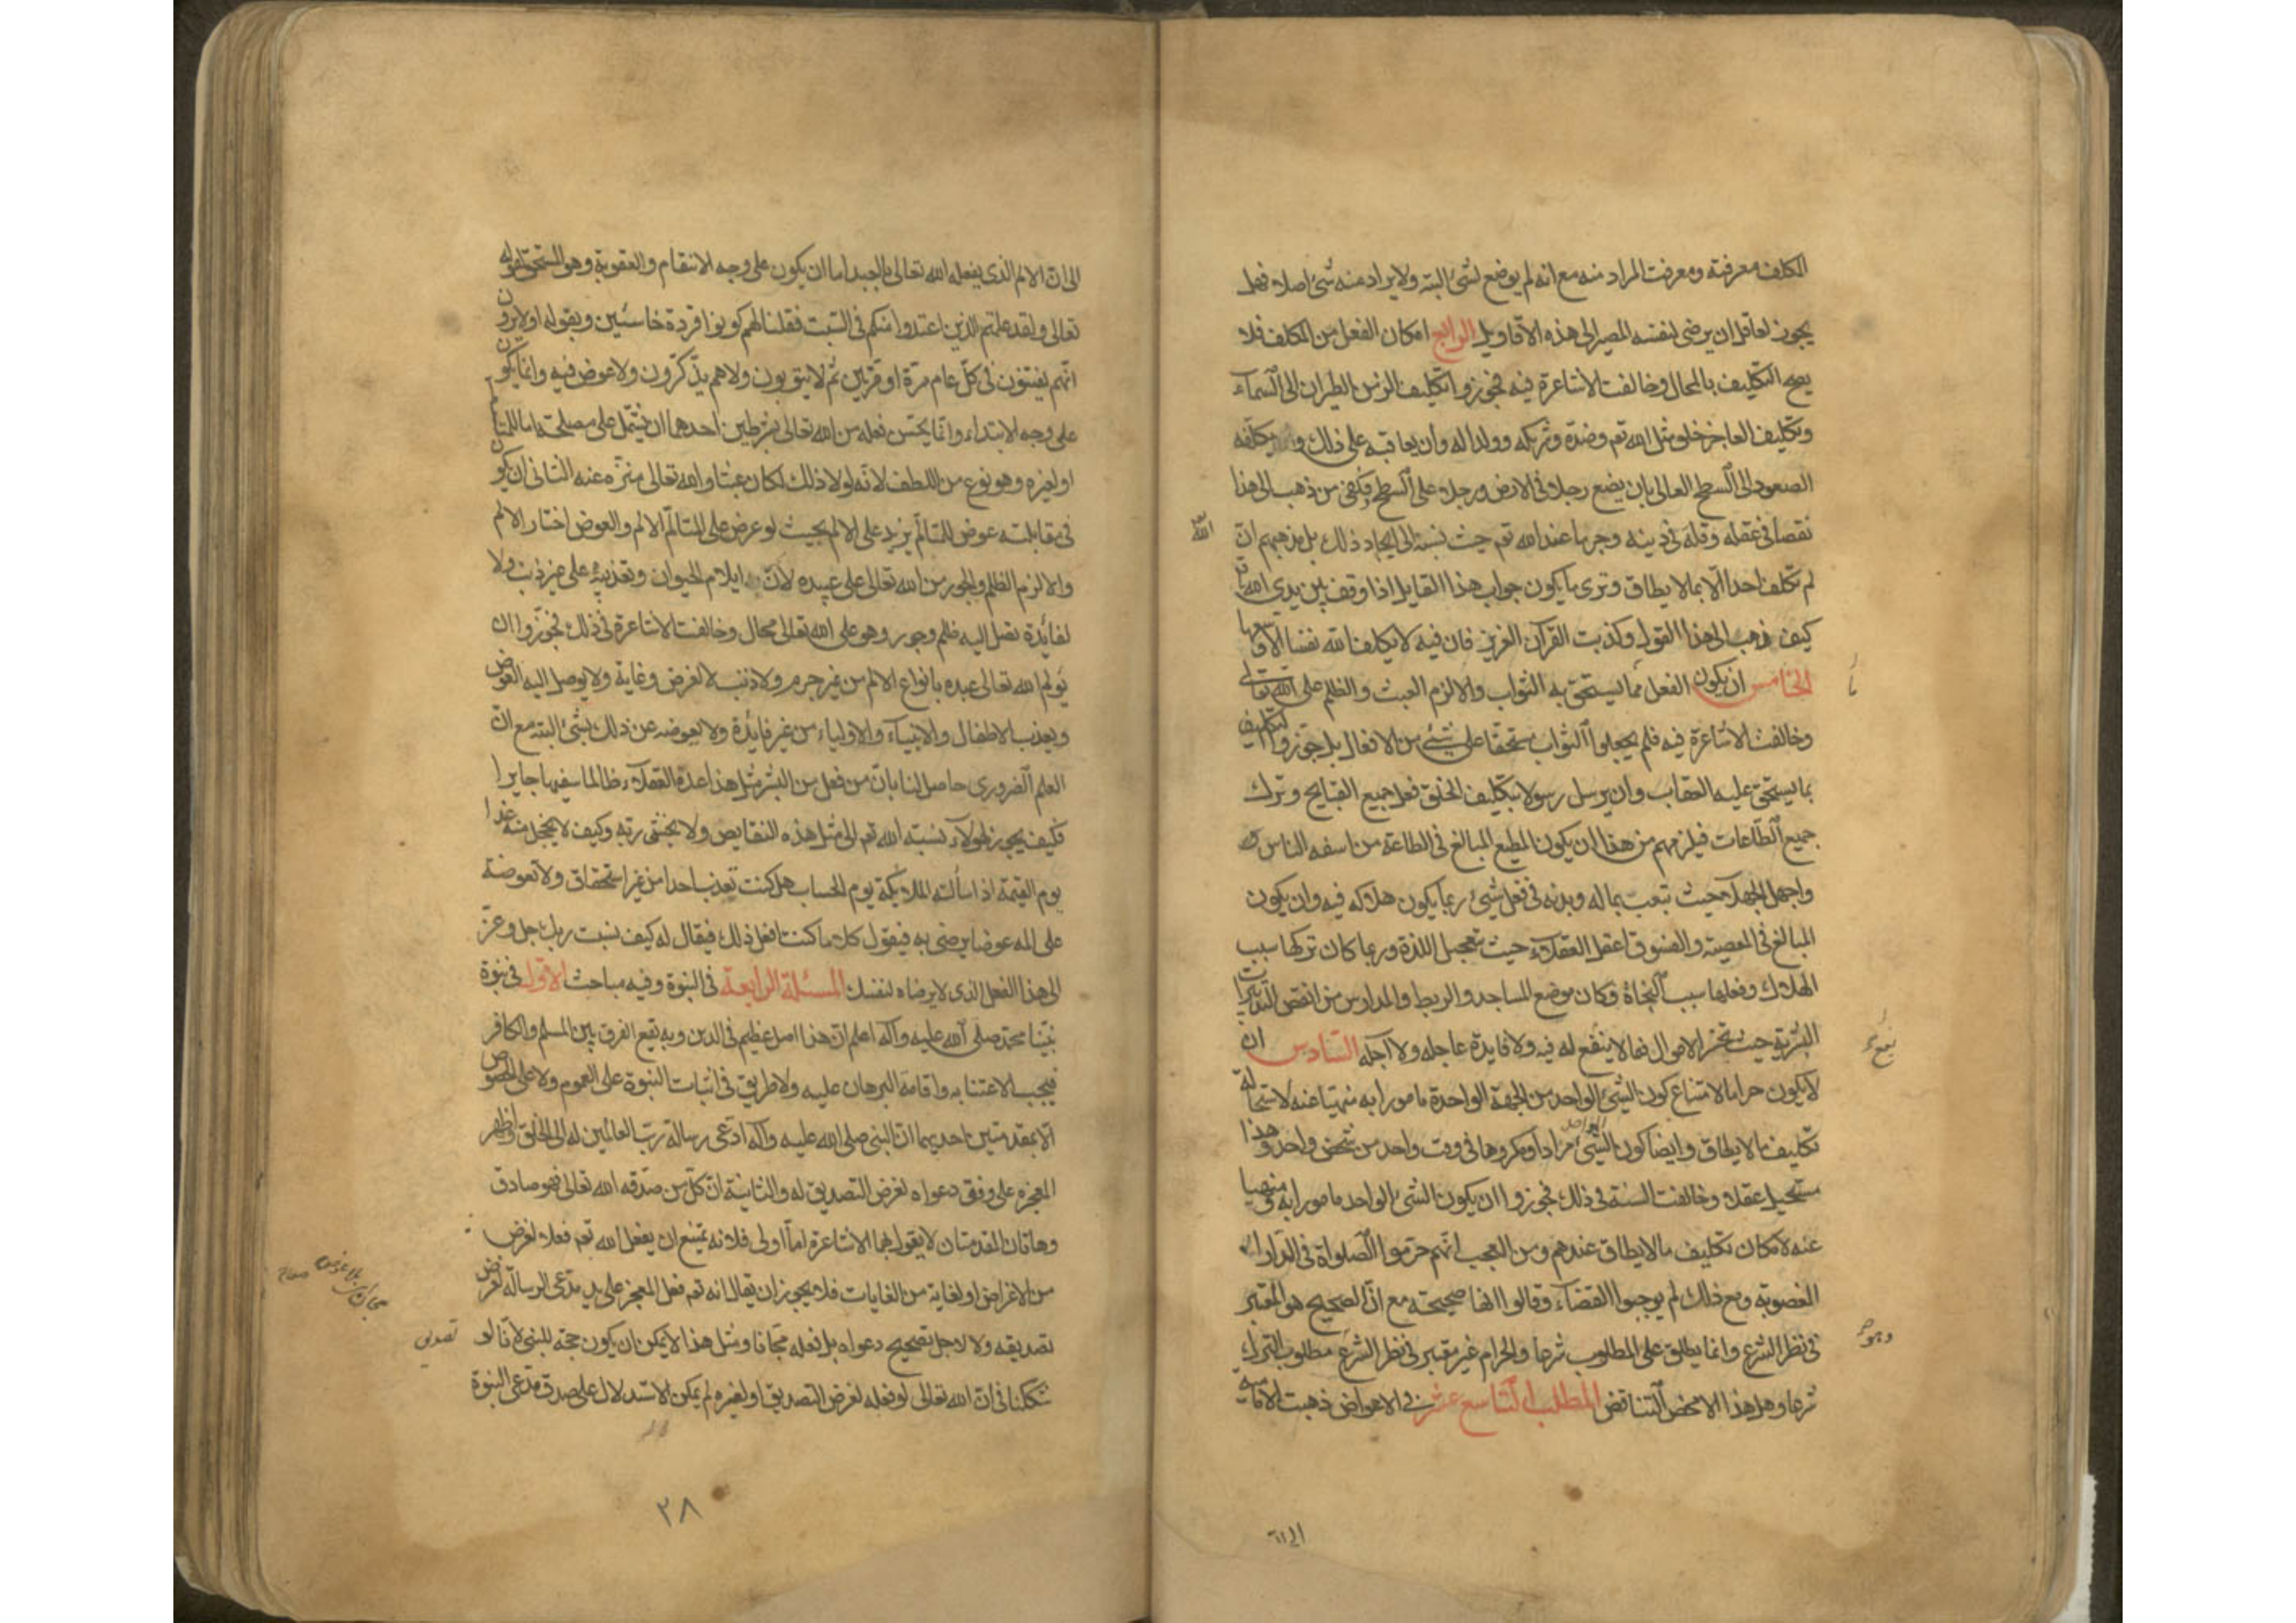 المكلف معرفته ومعرفت المراد منه مع انه لم يوضع لشئ البتة ولا يراد منه شئ اصلا فهل
يجوز لعاقل ان يرضى لنفسه المصير الى هذه الاقاويل الرابع امكان الفعل من المكلف فلا
يصح التكليف بالمحال وخالفت الاشاعرة فيه فجوزوا تكليف الزمن الطيران الى السماء
وتكليف العاجز خلق مثل الله تعم وضده وشريكه وولدا له وان يعاقبه على ذلك و يكلفه
الصعود الى السطح العالى بان يضع رجلا فى الارض ورجلا على السطح وكفى من ذهب الى هذا
نقصا فى عقله وقلة فى دينه وجرما عند الله تعم حيث نسبه الى ايجاد ذلك بل مذهبهم ان
الله
لم تكلف احدا الا بما لا يطاق وترى ما يكون جواب هذا القايل اذا وقف بين يدى الله تعا
كيف ذهب الى هذا القول وكذبت القرآن العزيز فان فيه لا يكلف الله نفسا الا وسعها
الخامس ان يكون الفعل مما يستحق به الثواب والا لزم العبث والظلم على الله تعالى
وخالفت الاشاعرة فيه فلم يجعلوا الثواب مستحقا على شئ من الافعال بل جوزوا التكليف
بما يستحق عليه العقاب وان يرسل رسولا بتكليف الخلق فعل جميع القبايح وترك
جميع الطاعات فيلزمهم من هذا ان يكون المطيع المبالغ فى الطاعة من اسفه الناس
واجهل الجهلاء حيث تبعب بماله وبدنه فى فعل شئ ربما يكون هلاكه فيه وان يكون
المبالغ فى المعصية والفسوق اعقل العقلاء حيث تعجيل اللذة وربما كان تركها سبب
الهلاك وفعلها سبب النجاة وكان موضع المساجد والربط والمدارس من انقص التدبيرات
البشرية حيث تخسر الاموال فيما لا ينتفع له فيه ولا فايدة عاجله ولا اجله السادس ان
لا يكون حراما لامتناع كون الشئ الواحد من الجهة الواحدة مامورا به منهيا عنه لاستحالة
تكليف ما لا يطاق وايضا كون الشئ الواحد مرادا ومكروها فى وقت واحد من شخص واحد وهذا
مستحيل عقلا وخالفت السنة فى ذلك فجوزوا ان يكون الشئ الواحد مامورا به ومنهيا
عنه لامكان تكليف ما لا يطاق عندهم ومن العجب انهم حرموا الصلواة فى الدار
المغصوبة ومع ذلك لم يوجبوا القضاء وقالوا انها صحيحة مع ان الصحيح هو المعتبر
فى نظر الشرع وانما يطلق على المطلوب شرعا والحرام غير معتبر فى نظر الشرع مطلوب الترك
شرعا وهل هذا الا محض التناقض المطلب التاسع عشر فى الاعواض ذهبت الامامية
الى ان
الى ان الالم الذى يفعله الله تعالى بالعبد اما ان يكون على وجه الانتقام والعقوبة وهو المستحق لقوله
تعالى ولقد علمتم الذين اعتدوا منكم فى السبت فقلنا لهم كونوا قردة خاسئين وبقوله اولا يرون
انهم يفتنون فى كل عام مرة او مرتين ثم لا يتوبون ولا هم يذكرون ولا عوض فيه واما يكون
على وجه الابتداء وانما يحسن فعله من الله تعالى بشرطين احدهما ان يشتمل على مصلحة اما للمتالم
او لغيره وهو نوع من اللطف لانه لولا ذلك لكان عبثا والله تعالى منزه عنه الثانى ان يكون
فى مقابلته عوض للمتالم يزيد على الالم بحيث لو عرض على المتالم الالم والعوض اختار الالم
والا لزم الظلم والجور من الله تعالى على عبيده لان ايلام الحيوان وتعذيبه على غير ذنب ولا
لفائدة تصل اليه ظلم وجور وهو على الله تعالى محال وخالفت الاشاعرة فى ذلك فجوزوا ان
يولم الله تعالى عبده بانواع الالم من غير جرم ولا ذنب لا لغرض وغاية ولا يوصل اليه العوض
ويعذب الاطفال والانبياء والاولياء من غير فايدة ولا يعوضه عن ذلك بشئ البتة مع ان
العلم الضرورى حاصل لنا بان من فعل من البشر مثل هذا عدة العقلاء ظالما سفيها جايرا
فكيف يجوز لهولاء نسبة الله تعم الى مثل هذه النقايص ولا يخشى ربه وكيف لا يخجل منه غدا
يوم القيمة اذا سالته الملايكة يوم الحساب هل كنت تعذب احدا من غير استحقاق ولا تعوضة
على المه عوضا يرضى به فيقول كلا ما كنت افعل ذلك فيقال له كيف نسبت ربك جل وعز
الى هذا الفعل الذى لا يرضاه لنفسك المسئلة الرابعة فى النبوة وفيه مباحث الاول فى نبوة
نبينا محمد صلى الله عليه وآله اعلم ان هذا اصل عظيم فى الدين وبه يقع الفرق بين المسلم والكافر
فيجب الاعتنا به واقامة البرهان عليه ولا طريق فى اثبات النبوة على العموم ولا على الخصوص
الا بمقدمتين احديهما ان النبى صلى الله عليه وآله ادعى رسالة رب العالمين له الى الخلق واظهر
المعجزة على وفق دعواه لغرض التصديق له والثانية ان كل من صدقه الله تعالى فهو صادق
وهاتان المقدمتان لا يقول بهما الاشاعرة اما اولى فلانه يمتنع ان يفعل الله تعم فعلا لغرض
من الاغراض او لغاية من الغايات فلا يجوز ان يقال انه تعم فعل المعجز على يد مدعى الرسالة لغرض
تصديقه ولا لاجل تصحيح دعواه بل فعله مجانا ومثل هذا لا يمكن ان يكون حجة للنبى لانا لو
شككنا فى ان الله تعالى لو فعله لغرض التصديق او لغيره لم يمكن الاستدلال على صدق مدعى النبوة
٢٨